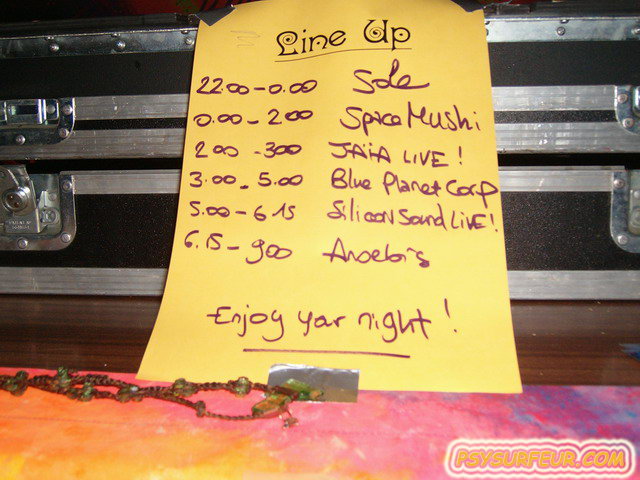 Line Up
22.00-0.00 Sole
0.00-2.00 Space Mushi
2.00-3.00 JAïA LiVE!
3.00-5.00 Blue Planet Corp
5.00-6.15 Silicon Sound LiVE!
6.15-9.00
Enjoy your night!
PSYSURFEUR.COM